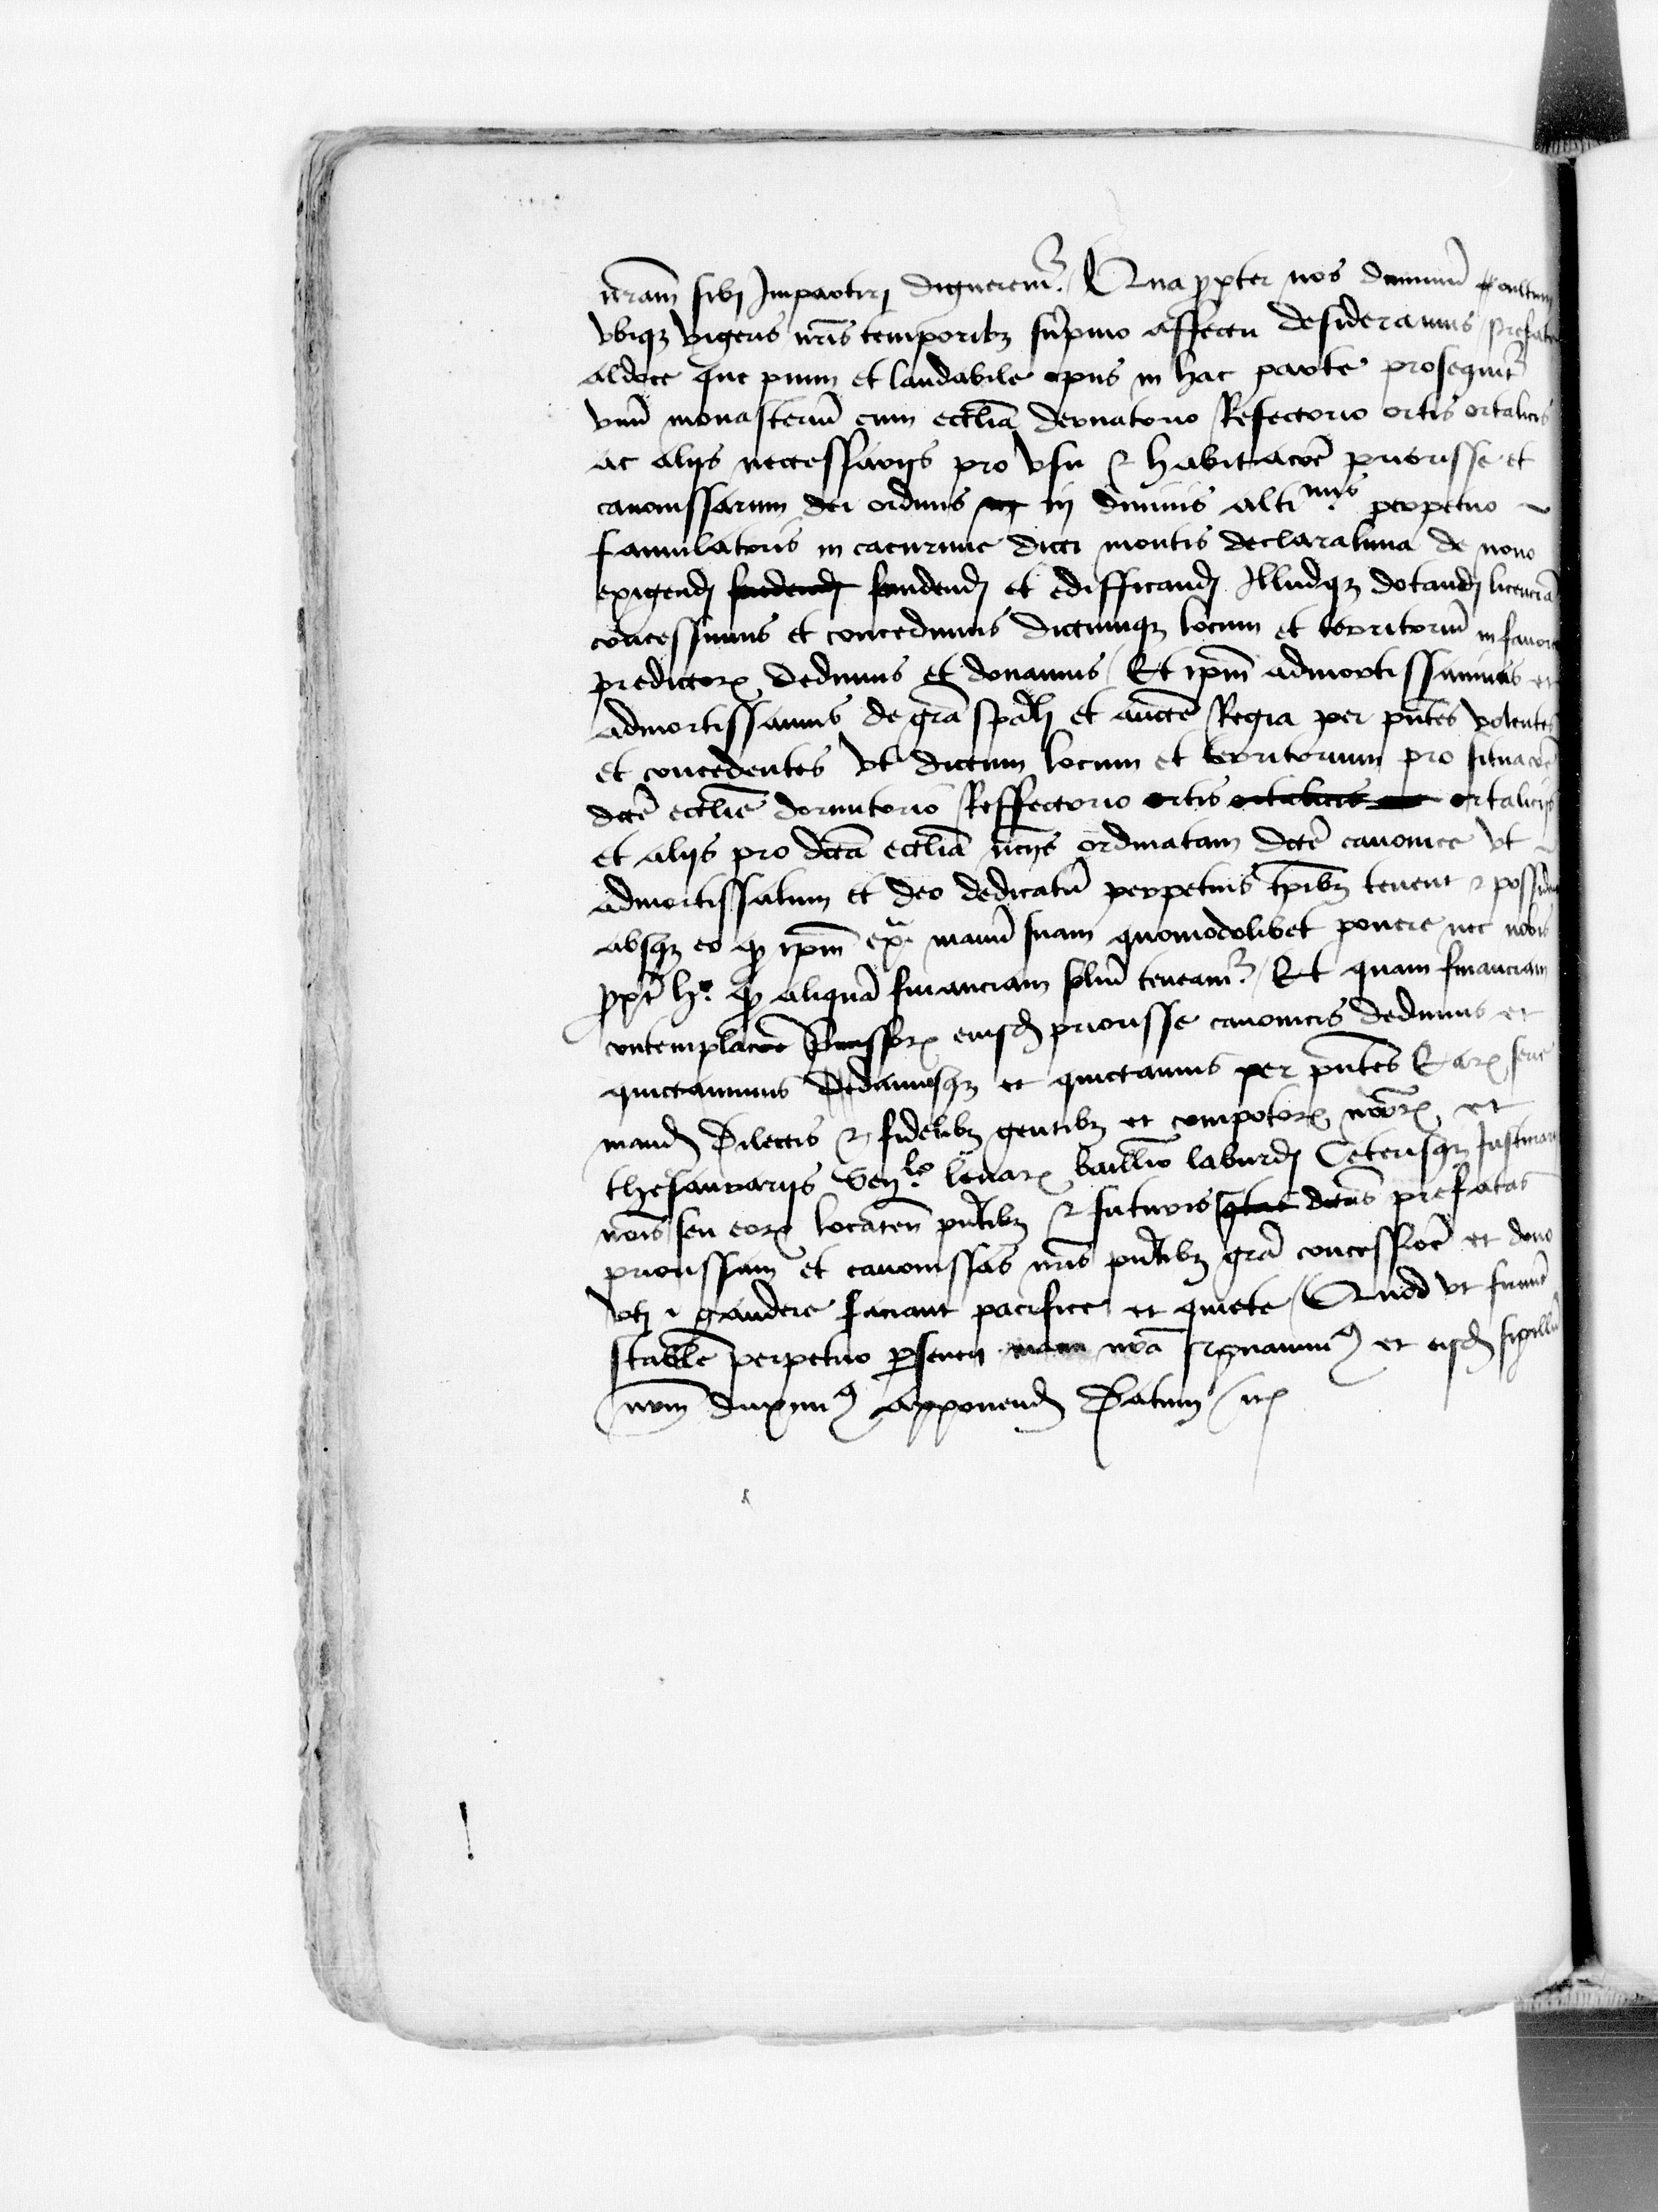 nram̄ sibj Impartirj digneremr̄ / Qua propter nos diuinū cultum
vbiqz vigeris nr̄is temporibz sūpmo affectu desideramus / prefate
aldoce que pium et laudabile opus in hac parte prosequitr̄
vnū monasteriū cum eccliā dormatorio Refectorio ortis ortaliciis
ac alijs neccessarijs pro vsu & habitacōe priorisse et
canonissarum dei ordinis in diuinis alti.mis perpetuo
famulatoris in cacumine dicti montis declaratiua de nouo
exigendj fundendj et edifficandj Illudqz dotandj licenciā
concessimus et concedimus dictumqz locum et territoriū in fauore
predictorz dedimus et donamus / Et ipm̄ admortissauimus et
admortissamus de grā spālj et auctē Regia per pn̄tes volentes
et concedentes vt dictum locum et territorium pro situacōe
dctē ecclīe dormitorio Reffectorio ortis ortalicijs
et alijs pro dctā eccliā ncīis ordinatam dctē canonice vt
admortissatum et deo dedicatū perpetuis tp̄ibz tenent & possid
absqz eo qp ipm̄ exᵃ manū suam quomodolibet ponere nec nobis
propt̄ hᵒ qp aliquā financiam soluē teneamr̄ / Et quam financiam
contemplacōe eiusdj priorisse canonicis dedimus et
quictauimus Dedimusqz et quictamus per pn̄tes Earz serie
mandj Dilectis & fidelibz gentibz et compotorz nr̄orz et
thesaurarijs Senᵉ.lo lanarz bailliuo laburdj Ceterisqz Justiciarijs
nr̄is / seu eorz locaten̄ pn̄tibz & futuris prefatas
priorissam et canonissas nr̄is pn̄tibz grā concessioē et dono
vtj & gaudere faciant pacifice et quiete / Quod vt firmū
stabile perpetuo perseuerj nr̄a signauimꝯ et eisdj sigillū
nrm̄ duximꝯ apponendj Datum etc